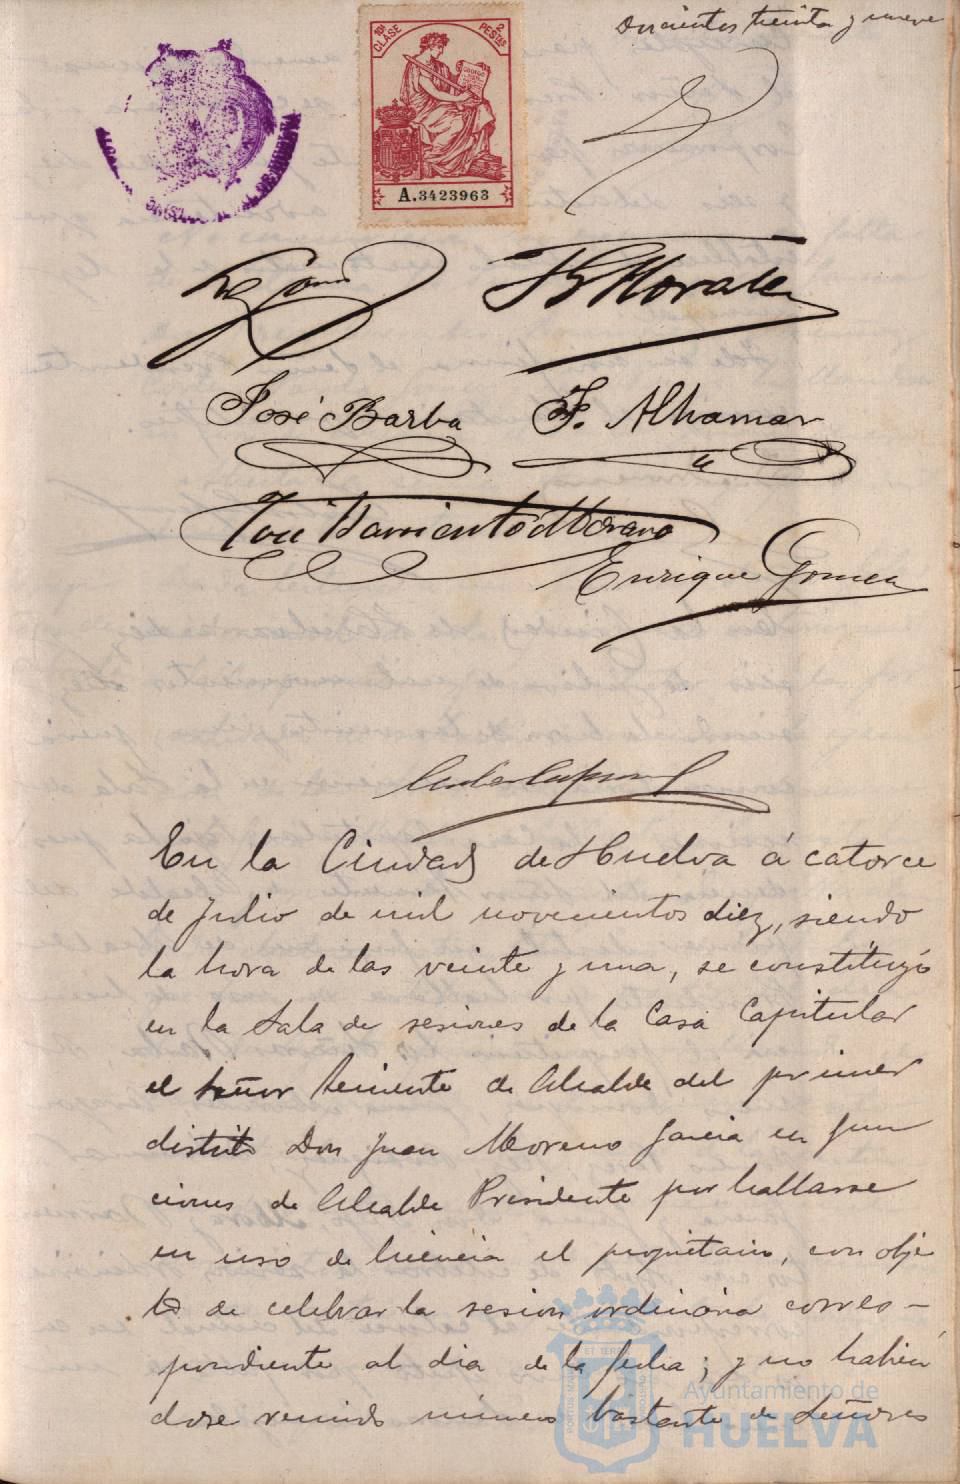 Doscientos treinta y nueve
10ª CLASE 2 PESTAS
A.3423963
José Barba F. Alhamar
José Barrientos Moreno
Enrique Gomez
En la Ciudad de Huelva á catorce
de Julio de mil novecientos diez, siendo
la hora de las veinte y una, se constituyó
en la Sala de sesiones de la Casa Capitular
el Señor Teniente de Alcalde del primer
distrito Don Juan Moreno Garcia en fun
ciones de Alcalde Presidente por hallarse
en uso de licencia el propietario, con obje
to de celebrar la sesion ordinaria corres-
pondiente al dia de la fecha; y no habien
dose reunido número bastante de Señores
Ayuntamiento de
HUELVA